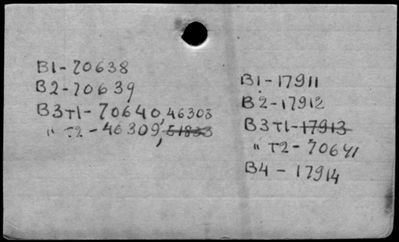 B1-70638
B2-70639
B3T1-70640, 46303
" T2-46309, 51833
B1-17911
B2-17912
B3T1-17913
" T2-70641
B4-17914